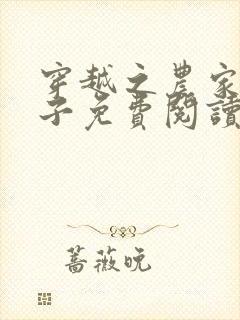 穿越之農家
子免費閱讀
蔷薇晚